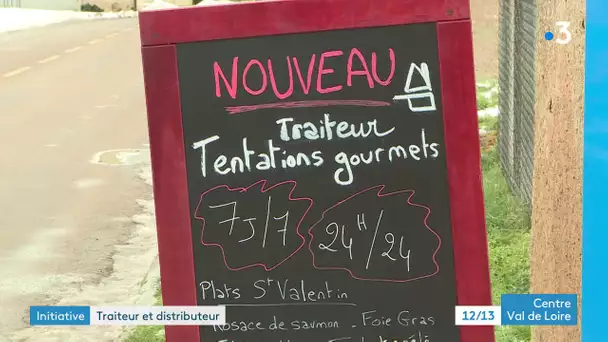 3
NOUVEAU
Traiteur
Tentations gourmets
7J/7
24H/24
Plats St Valentin
Rosace de saumon - Foie Gras
Initiative Traiteur et distributeur
12/13 Centre
Val de Loire